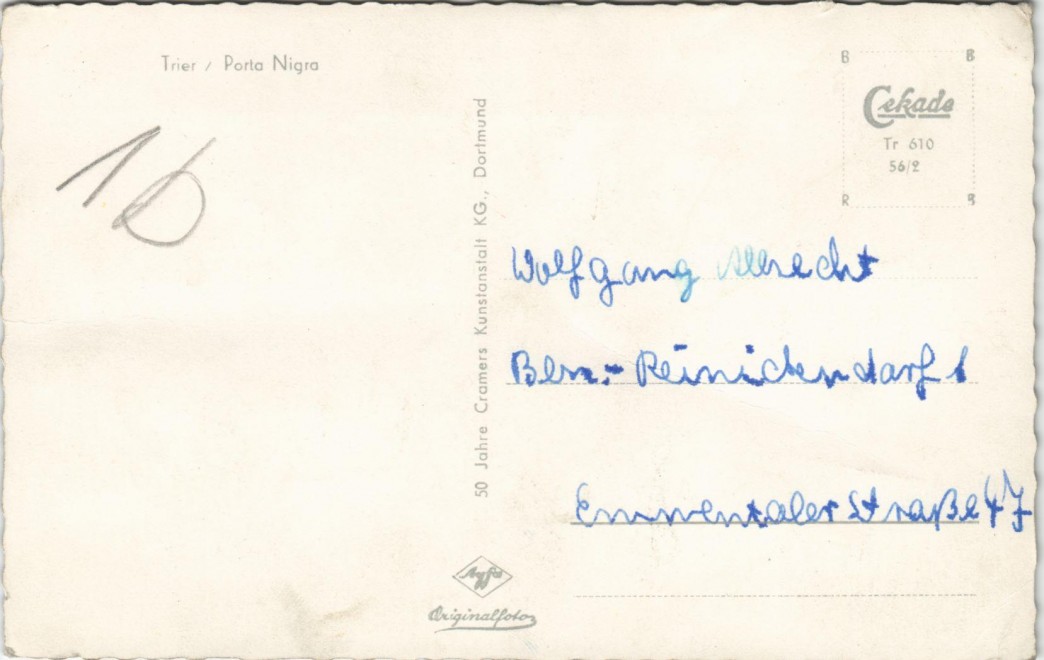 Trier / Porta Nigra
16
50 Jahre Cramers Kunstanstalt KG., Dortmund
Cekade
Tr 610
56/2
Wolfgang Albrecht
Bln.- Reinickendorf 1
Emmentaler Straße 47
Agfa
Originalfoto